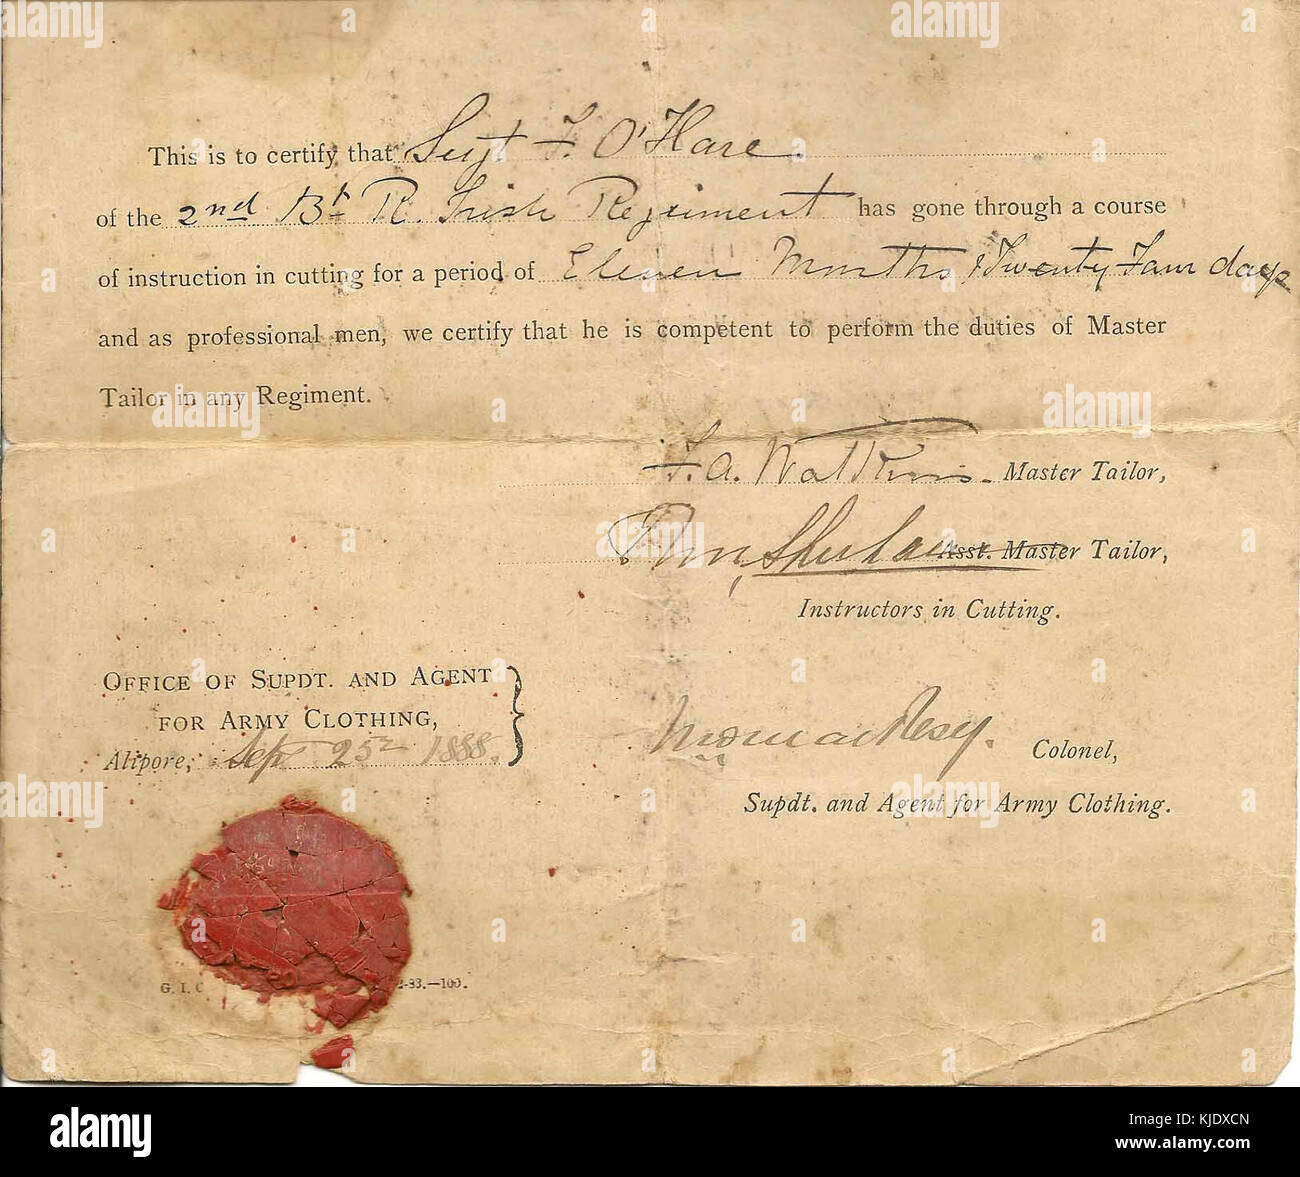 This is to certify that Sergt F. O'Hare
of the 2nd Bt R. Irish Regiment has gone through a course
of instruction in cutting for a period of Eleven Months & Twenty Four days
and as professional men, we certify that he is competent to perform the duties of Master
Tailor in any Regiment.
F. A. Watkins. Master Tailor,
Asst. Master Tailor,
Instructors in Cutting.
OFFICE OF SUPDT. AND AGENT
FOR ARMY CLOTHING,
Alipore, Sept 25th 1888.
Colonel,
Supdt. and Agent for Army Clothing.
G. I. C
-100.
a alamy
alamy
Image ID: KJDXCN
www.alamy.com